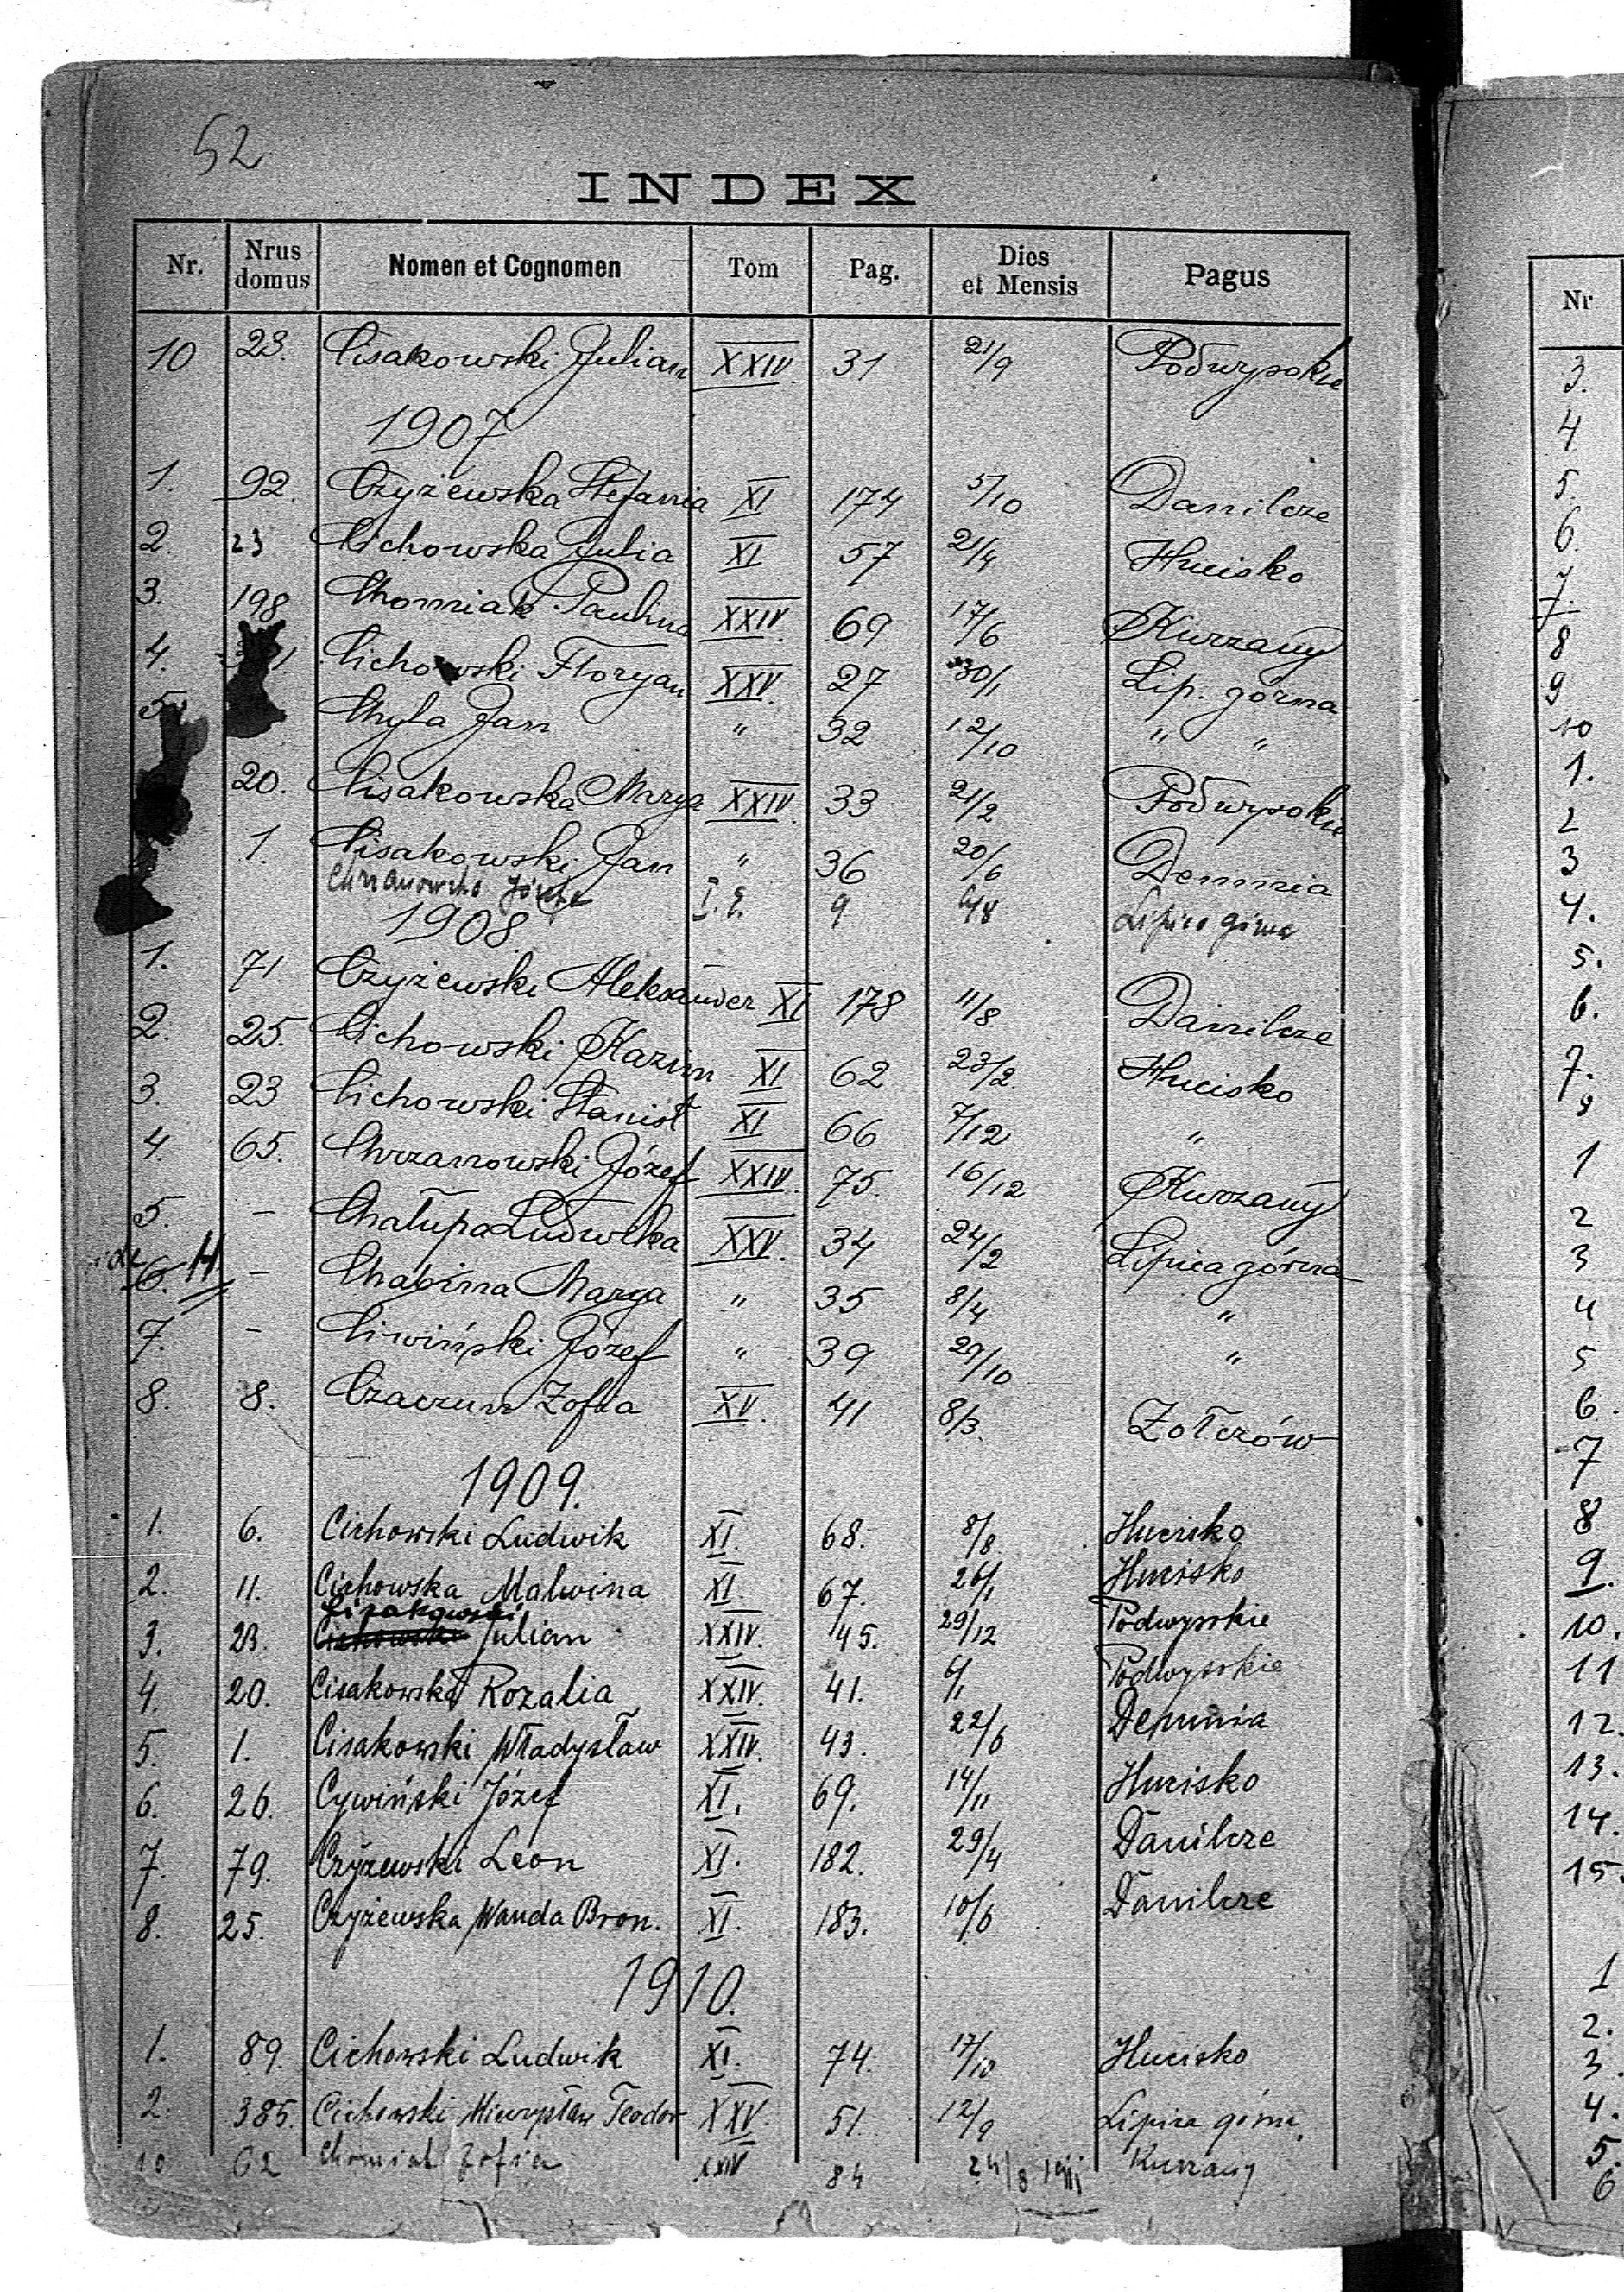 52
INDEX
Nr. Nrus domus Nomen et Cognomen Tom Pag. Dies et Mensis Pagus
10 23. Cisakowski Julian XXIV. 31 21/9 Podwysokie
1907
1. 92. Czyżewska Stefania XI 174 5/10 Danilcze
2. 23 Cichowska Julia XI 57 21/4 Hucisko
3. 198 Chomiak Paulina XXIV. 69 17/6 Kurzany
4. Cichowski Floryan XXV. 27 30/1 Lip. górna
5. Chyla Jan " 32 12/10 " "
20. Cisakowska Marya XXIV. 33 21/2 Podwysokie
1. Cisakowski Jan " 36 20/6 Demnia
Chrzanowska 9 Lipica górna
1908
1. 71 Czyżewski Aleksander XI 178 11/8 Danilcze
2. 25. Cichowski Kazim XI 62 23/2 Hucisko
3. 23 Cichowski Stanisł XI 66 7/12 "
4. 65. Chrzanowski Józef XXIV. 75. 16/12 Kurzany
5. – Chałupa Ludwika XXV. 34 24/2 Lipica górna
6. H – Chabina Marya " 35 8/4 "
7. – Ciwiński Józef " 39 29/10 "
8. 8. Czaczun Zofia XV. 41 8/3. Zołczów
1909.
1. 6. Cichowski Ludwik XI. 68. 8/8. Hucisko
2. 11. Cichowska Malwina XI. 67. 26/1 Hucisko
Cisakowski
3. 23. Cichowski Julian XXIV. 45. 29/12 Podwysokie
4. 20. Cisakowska Rozalia XXIV. 41. 6/1 Podwysokie
5. 1. Cisakowski Władysław XXIV. 43. 22/6 Demnia
6. 26. Cywiński Józef XI. 69. 14/11 Hucisko
7. 79. Czyżewski Leon XI. 182. 29/4 Danilcze
8. 25. Czyżewska Wanda Bron. XI. 183. 10/6 Danilcze
1910.
1. 89. Cichowski Ludwik XI. 74. 17/10 Hucisko
2. 385. Cichowski Mieczysław Teodor XXV. 51. 12/9 Lipica górna
10 62 Chomiak Zofia XXIV 84 24/8 Kurzany
Nr
3.
4
5.
6.
7.
8
9
10
1.
2
3
4.
5.
6.
7.
8
1
2
3
4
5
6.
7
8
9.
10.
11
12.
13.
14.
15.
1
2.
3.
4.
5.
6